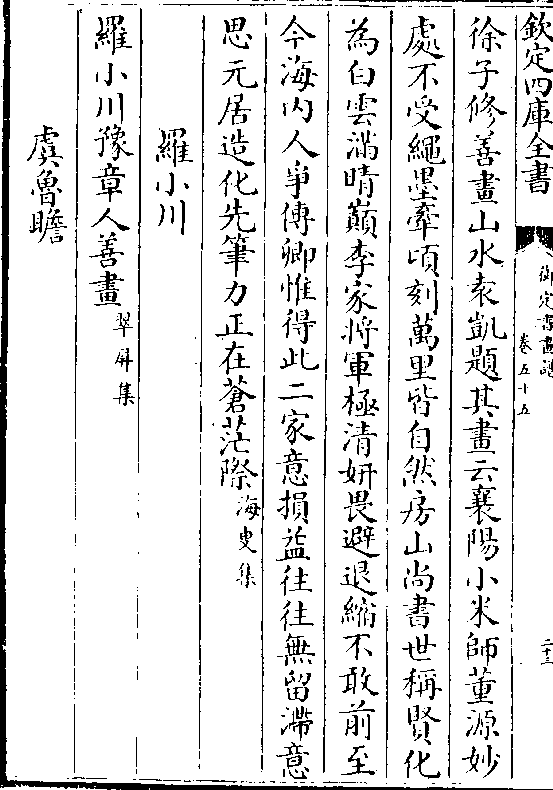 欽定四庫全書
御定書畫譜
卷五十五
二十三
徐子修善畫山水袁凱題其畫云襄陽小米師董源妙
處不受繩墨牽頃刻萬里皆自然房山尚書世稱賢化
為白雲滿晴巔李家將軍極清妍畏避退縮不敢前至
今海内人爭傳卿惟得此二家意損益往往無留滯意
思元居造化先筆力正在蒼茫際海叟集
羅小川
羅小川豫章人善畫翠屏集
虞魯瞻